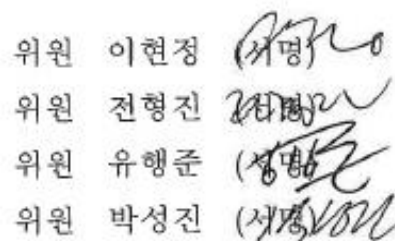 위원 이현정 (서명)
위원 전형진 (서명)
위원 유행준 (서명)
위원 박성진 (서명)